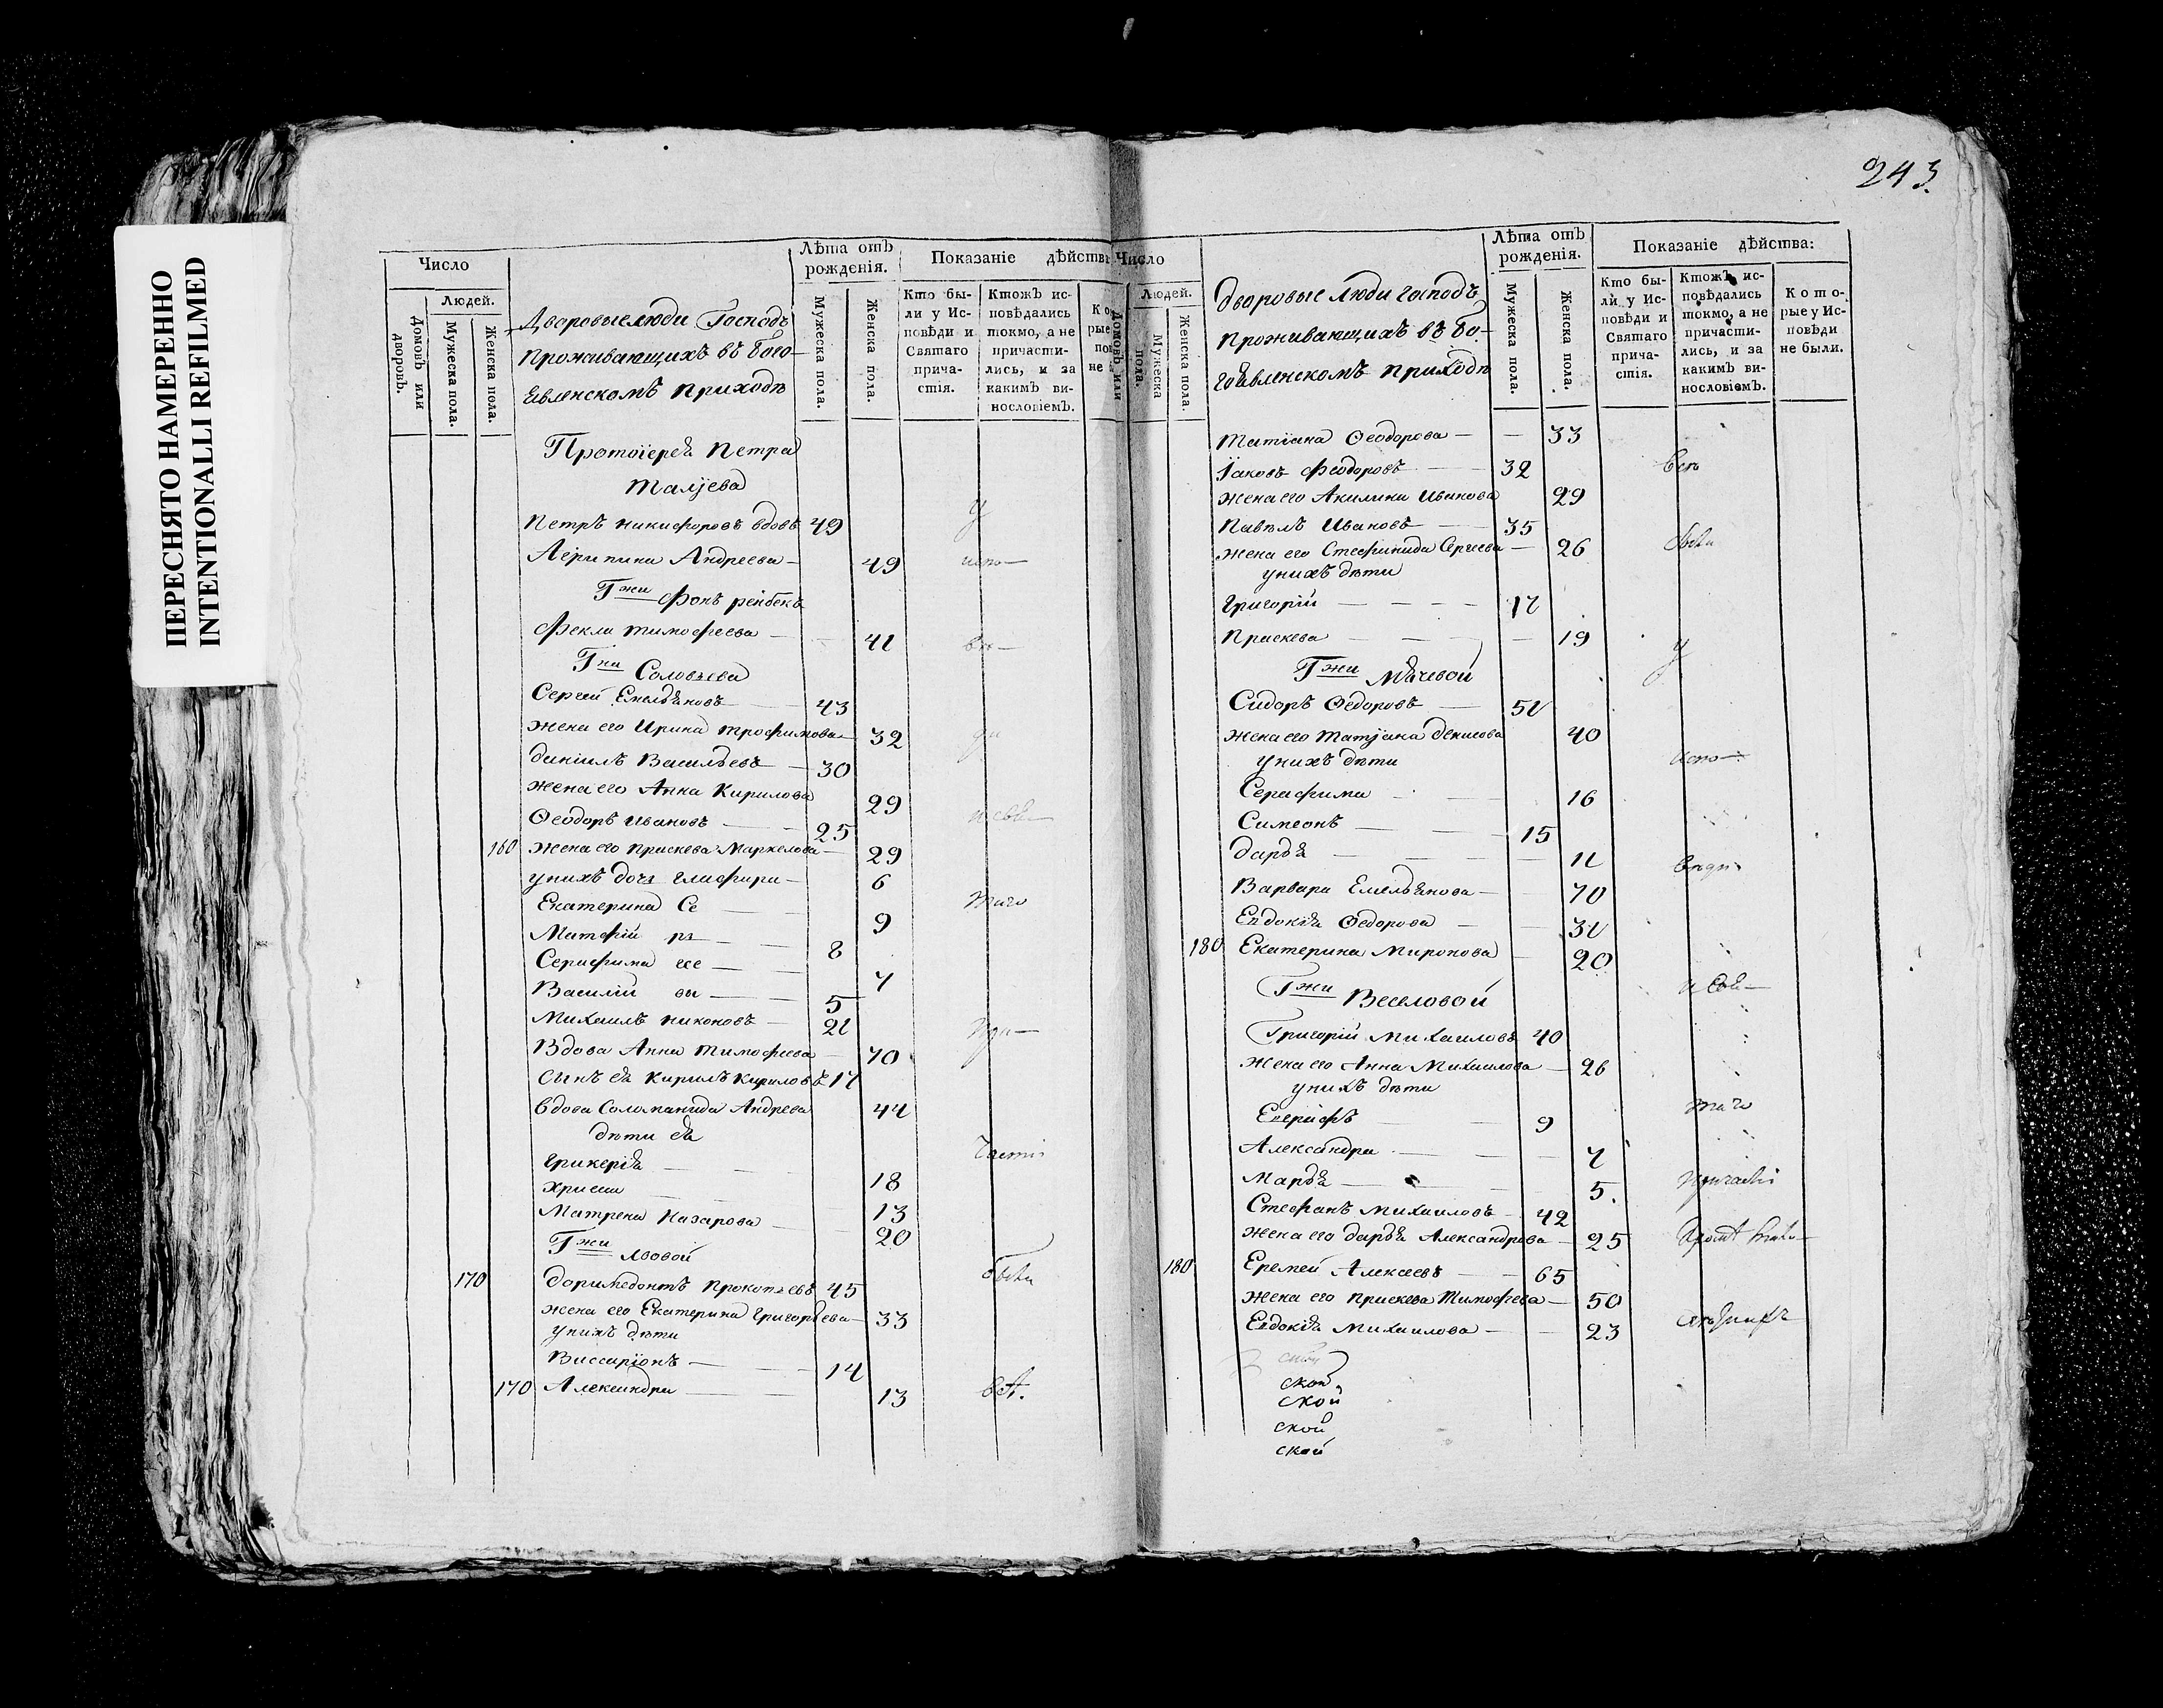 ПЕРЕСНЯТО НАМЕРЕННО
INTENTIONALLI REFILMED
243
Число
Людей.
Домовъ или дворовъ.
Мужеска пола.
Женска пола.
Дворовые люди Господъ
проживающихъ въ Бого-
явленскомъ приходѣ
Лѣта отъ рожденія.
Мужеска пола.
Женска пола.
Показаніе дѣйств
Кто бы-
ли у Ис-
повѣди и
Святаго
прича-
стія.
Ктожъ ис-
повѣдались
токмо, а не
причасти-
лись, и за
какимъ ви-
нословіемъ.
Протоіерея Петра
Петръ Никифоровъ вдовъ 49
Агрипина Андреева — 49
Гжи Фонъ рейбекъ
Фекла Тимофеева — 41
Соловьева
Сергей Емельяновъ — 43
жена его Ирина Трофимова — 32
Даніилъ Васильевъ — 30
жена его Анна Кирилова 29
Ѳеодоръ Ивановъ — 25
160 жена его Праскева Маркелова — 29
у нихъ дочь Глафира — 6
Екатерина — 9
Матфій — 8
Серафима — 7
Василій — 5
Михаилъ Никоновъ — 21
Вдова Анна Тимофеева — 70
сынъ ея Кирилъ Кириловъ 17
вдова Соломанида Андреева 44
дѣти ея
Гликерія — 18
Хрисия — 13
Матрена Назарова — 20
Гжи Львовой
170 Доримедонтъ Прокопьевъ 45
жена его Екатерина Григорьева — 33
у нихъ дѣти
Виссаріонъ — 14
170 Александра — 13
Число
Людей.
Домовъ или
Мужеска пола.
Женска пола.
Дворовые люди господъ
проживающихъ въ Бо-
гоявленскомъ приходѣ
Лѣта отъ рожденія.
Мужеска пола.
Женска пола.
Показаніе дѣйства:
Кто бы-
ли у Ис-
повѣди и
Святаго
прича-
стія.
Ктожъ ис-
повѣдались
токмо, а не
причасти-
лись, и за
какимъ ви-
нословіемъ.
Кото-
рые у Ис-
повѣди
не были.
Татіана Ѳеодорова — — 33
Іаковъ Феодоровъ — 32
жена его Акилина Иванова 29
Павелъ Ивановъ — 35
жена его Стефанида Сергеева — 26
у нихъ дѣти
Григорій — 12
Праскева — 19
Гжи
Сидоръ Ѳедоровъ — 51
жена его Татіана Денисова 40
у нихъ дѣти
Серафима — 16
Симеонъ — 15
Дарья — 11
Варвара Емельянова — 70
Евдокія Ѳедорова — 31
180 Екатерина Миронова — 20
Гжи Веселовой
Григорій Михаиловъ 40
жена его Анна Михаилова — 26
у нихъ дѣти
Евграфъ — 9
Александра — 7
Марья — 5.
Стефанъ Михаиловъ — 42
жена его Дарья Александрова — 25
180 Еремей Алексеевъ — 65
жена его Праскева Тимофеева — 50
Евдокія Михаилова — 23
ской
ской
ской
ской